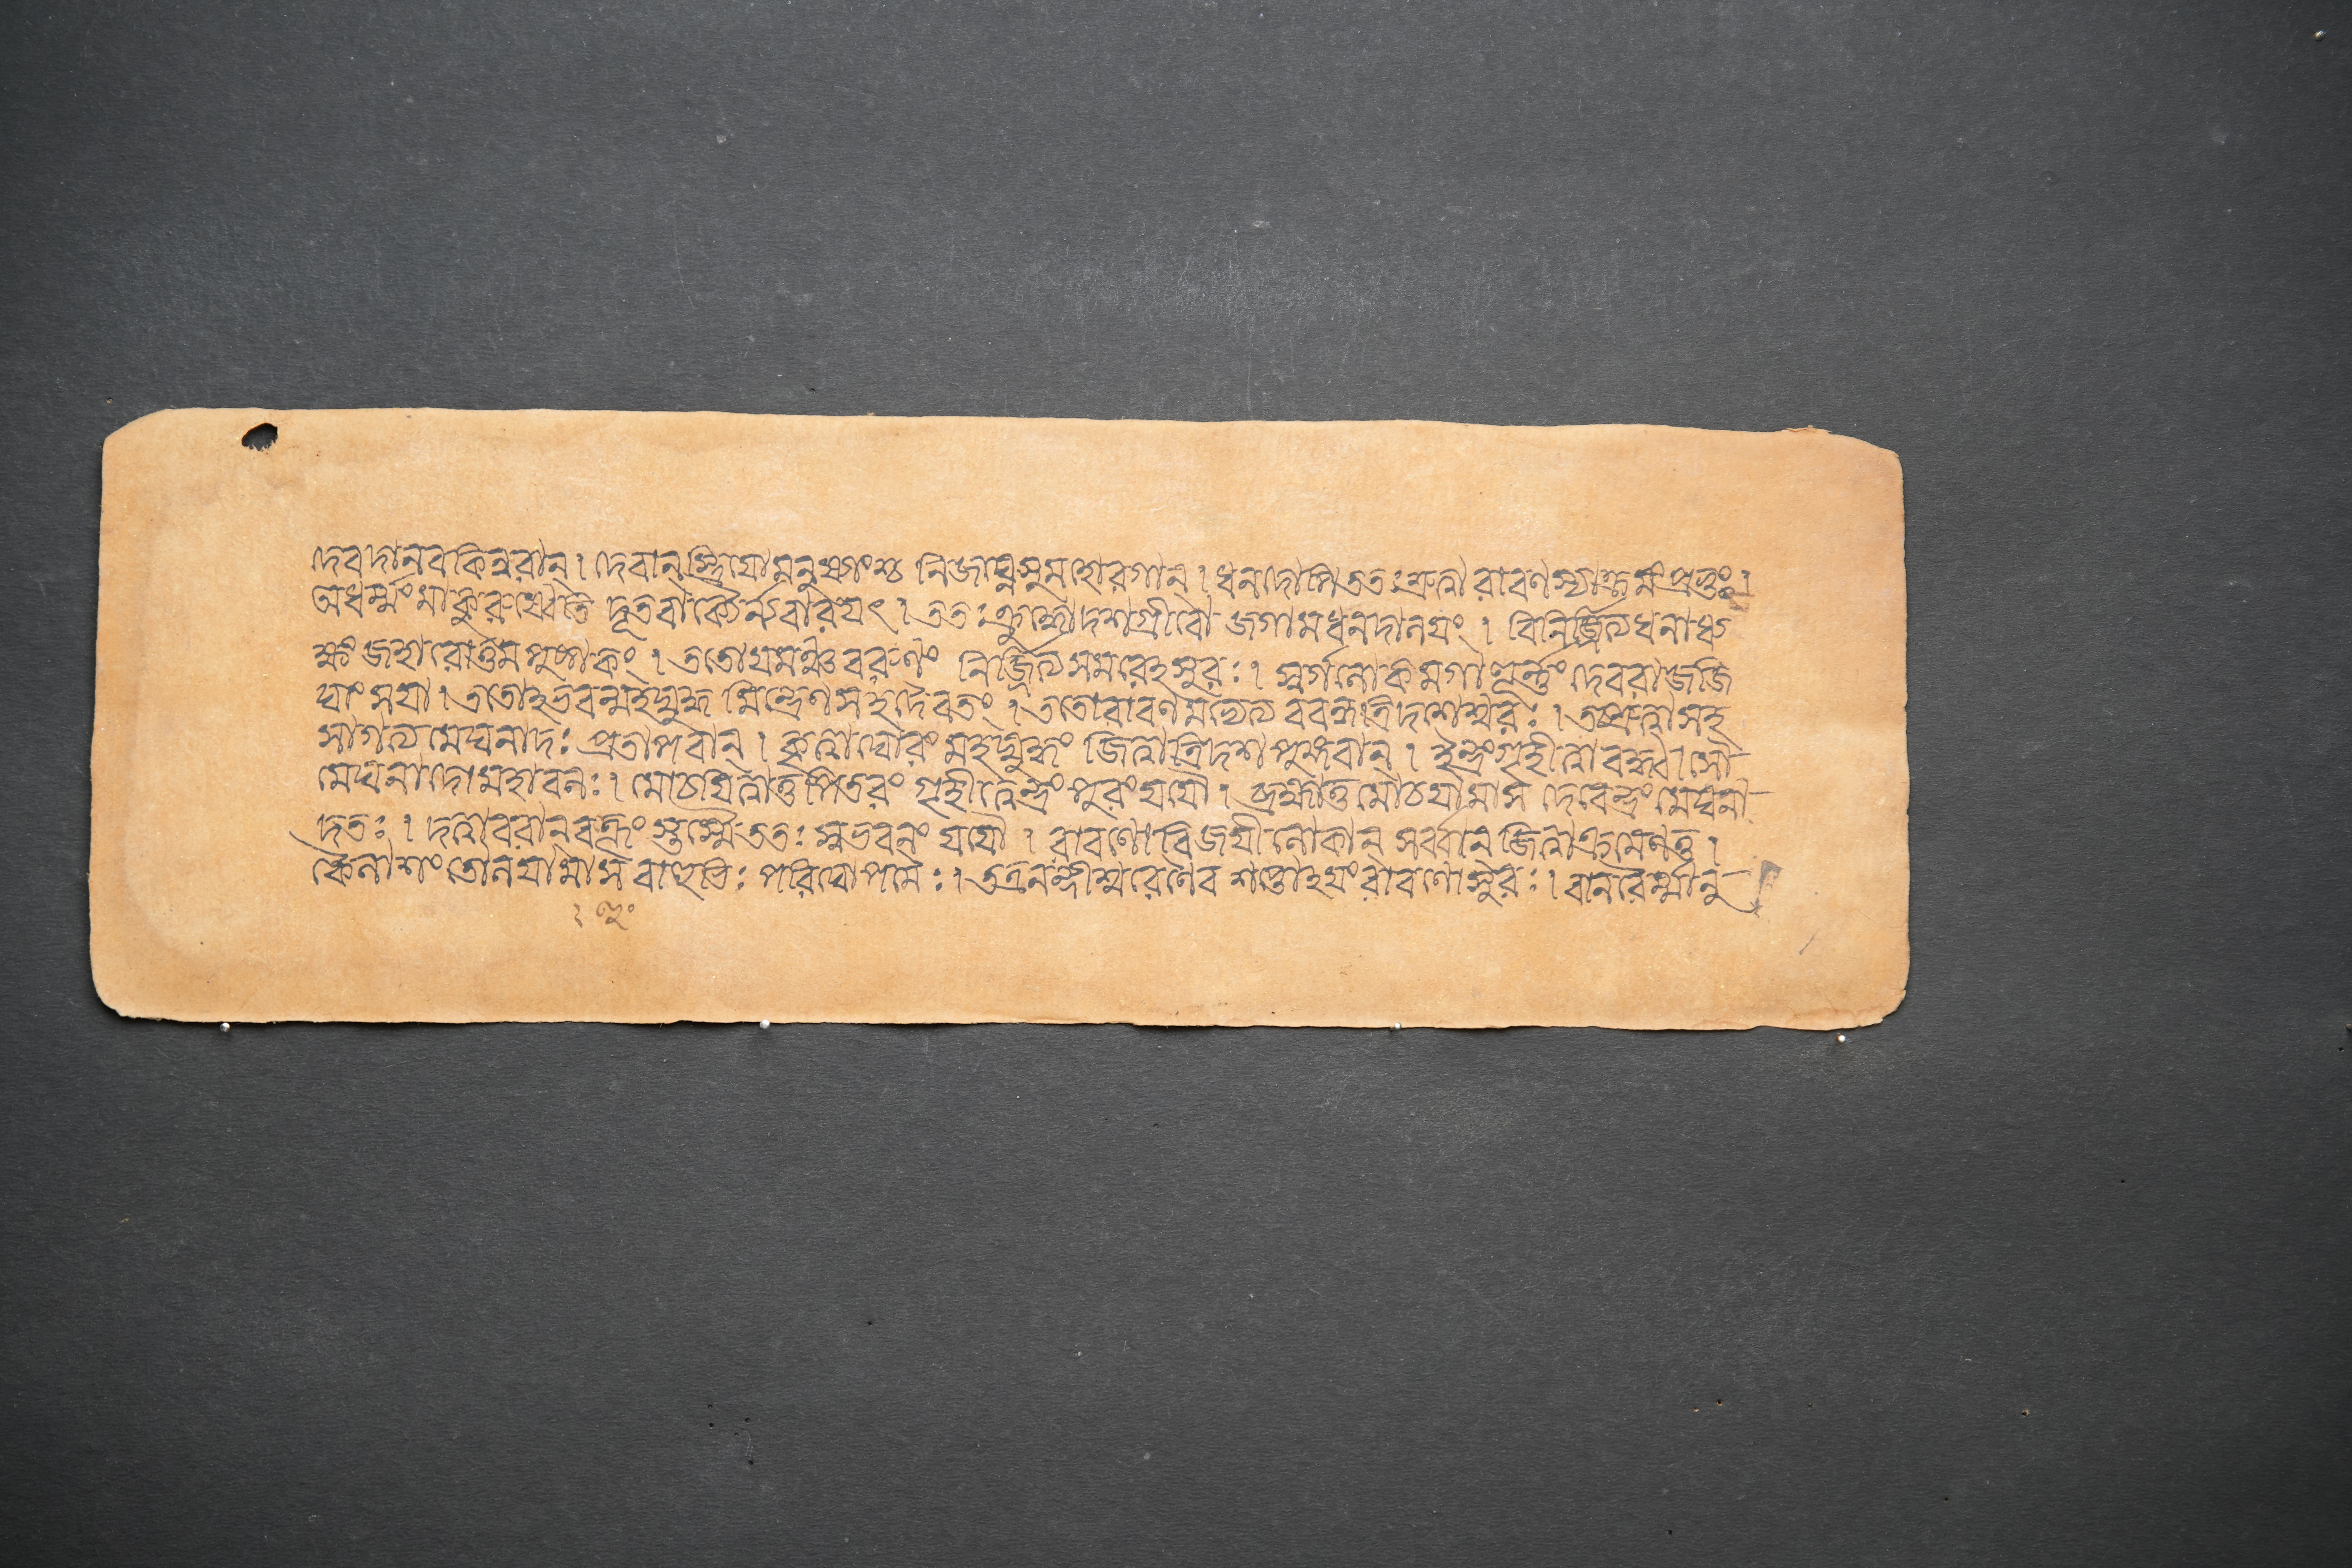 দেবদানবকিন্নরান্। দেবান্ স্ত্রিয়োমনুষ্যাংশ্চ নিজঘ্নুসুমহোরগান্। ধনদোঽপি ততঃ শ্রুত্বা রাবণস্যাক্রমং প্রভুঃ।
অধর্ম্মং মাকুরুষ্বেতি দূতবাক্যৈর্ন্যবারয়ৎ। ততঃ ক্রুদ্ধোদশগ্রীবো জগামধনদালয়ং। বিনির্জ্জিত্যধনাধ্য
ক্ষং জহারোত্তমপুষ্পকং। ততোযমঞ্চবরুণং নির্জ্জিত্যসমরেঽসুরঃ। স্বর্গলোকমগাত্তূর্ন্নং দেবরাজজি
ঘাংসয়া। ততোঽভবন্মহদ্যুদ্ধমিন্দ্রেণসহদৈবতং। ততোরাবণমভ্যেত্যববন্ধত্রিদশেশ্বরঃ। তচ্ছ্রুত্বাসহ
সাগত্যমেঘনাদঃ প্রতাপবান্। কৃত্বাঘোরং মহদ্যুদ্ধং জিত্বাত্রিদশপুঙ্গবান্। ইন্দ্রংগৃহীত্বাবদ্ধ্বাসৌ
মেঘনাদোমহাবলঃ। মোচয়িত্বাতুপিতরং গৃহীত্বেন্দ্রং পুরংযযৌ। ব্রহ্মাতুমোচয়ামাস দেবেন্দ্রং মেঘনা
দতঃ। দত্বাবরানবহূং স্তস্মৈততঃ স্বভবনং যযৌ। রাবণোবিজয়ীলোকান্ সর্ব্বান্ জিত্বাক্রমেণতু।
কৈলাশং তোলয়ামাস বাহুভিঃ পরিঘোপমৈঃ। তত্রনন্দীশ্বরেণৈব শপ্তোঽয়ংরাবণোসুরঃ। বানরৈর্ম্মানু